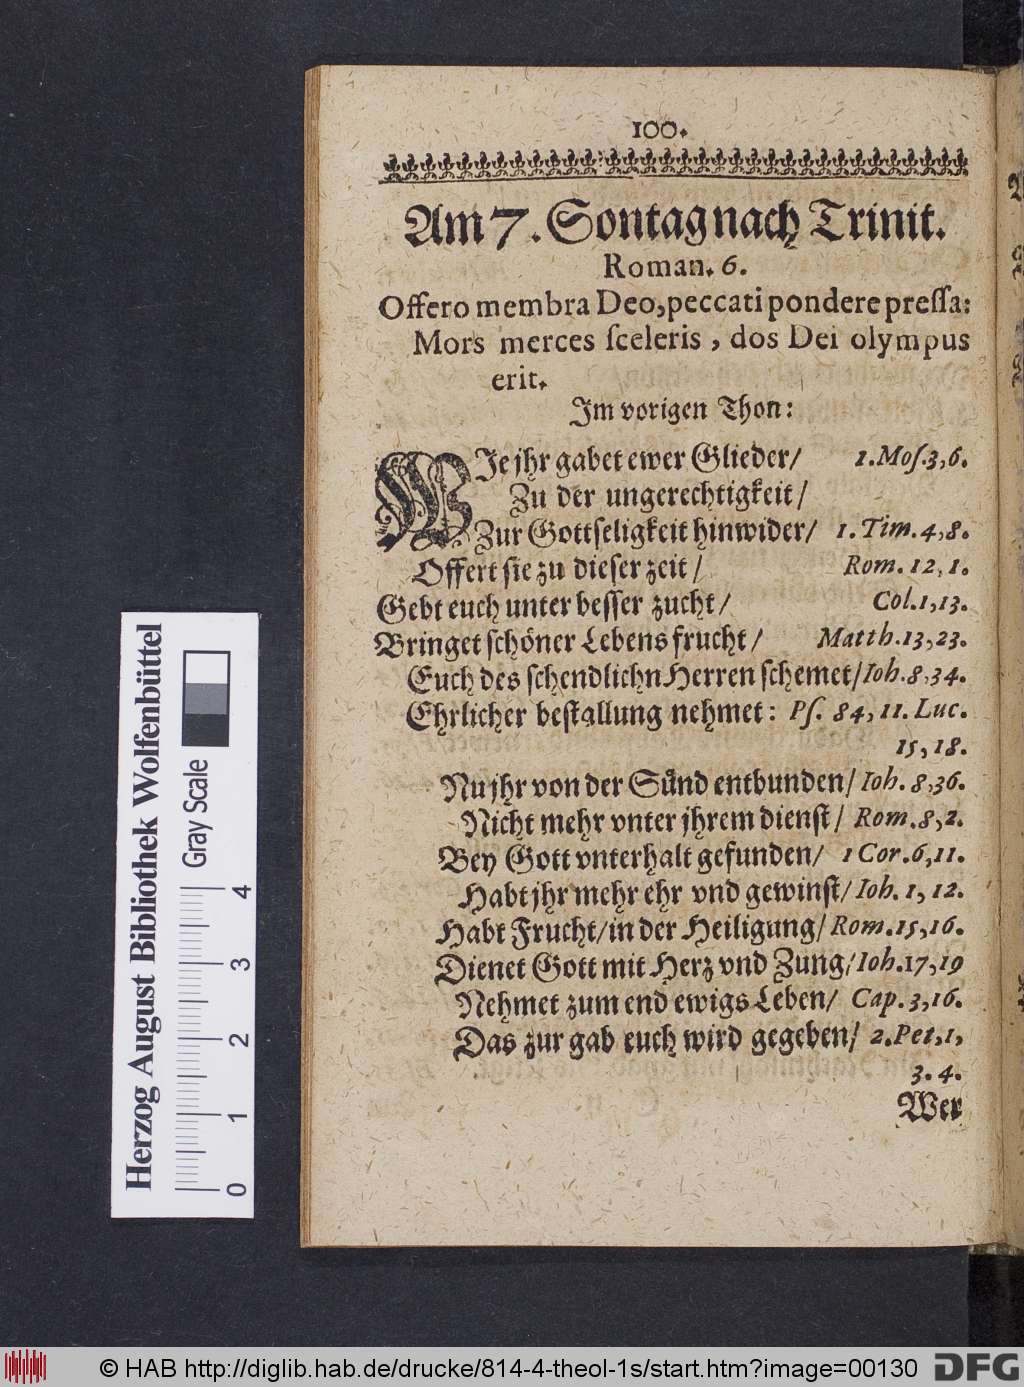 100.
Am 7. Sontag nach Trinit.
Roman. 6.
Offero membra Deo, peccati pondere preſſa:
Mors merces ſceleris, dos Dei olympus
erit.
Im vorigen Thon:
WIe jhr gabet ewer Glieder/ 1. Moſ. 3, 6.
Zu der ungerechtigkeit/
Zur Gottſeligkeit hinwider/ 1. Tim. 4, 8.
Offert ſie zu dieſer zeit/ Rom. 12, 1.
Gebt euch unter beſſer zucht/ Col. 1, 13.
Bringet ſchöner Lebens frucht/ Matth. 13, 23.
Euch des ſchendlichn Herren ſchemet/ Ioh. 8, 34.
Ehrlicher beſtallung nehmet: Pſ. 84, 11. Luc.
15, 18.
Nu jhr von der Sünd entbunden/ Ioh. 8, 36.
Nicht mehr vnter jhrem dienſt/ Rom. 8, 2.
Bey Gott vnterhalt gefunden/ 1 Cor. 6, 11.
Habt jhr mehr ehr vnd gewinſt/ Ioh. 1, 12.
Habt Frucht/ in der Heiligung/ Rom. 15, 16.
Dienet Gott mit Herz vnd Zung/ Ioh. 17, 19
Nehmet zum end ewigs Leben/ Cap. 3, 16.
Das zur gab euch wird gegeben/ 2. Pet, 1,
3. 4.
Wer
Herzog August Bibliothek Wolfenbüttel
Gray Scale
0 1 2 3 4
© HAB http://diglib.hab.de/drucke/814-4-theol-1s/start.htm?image=00130
DFG